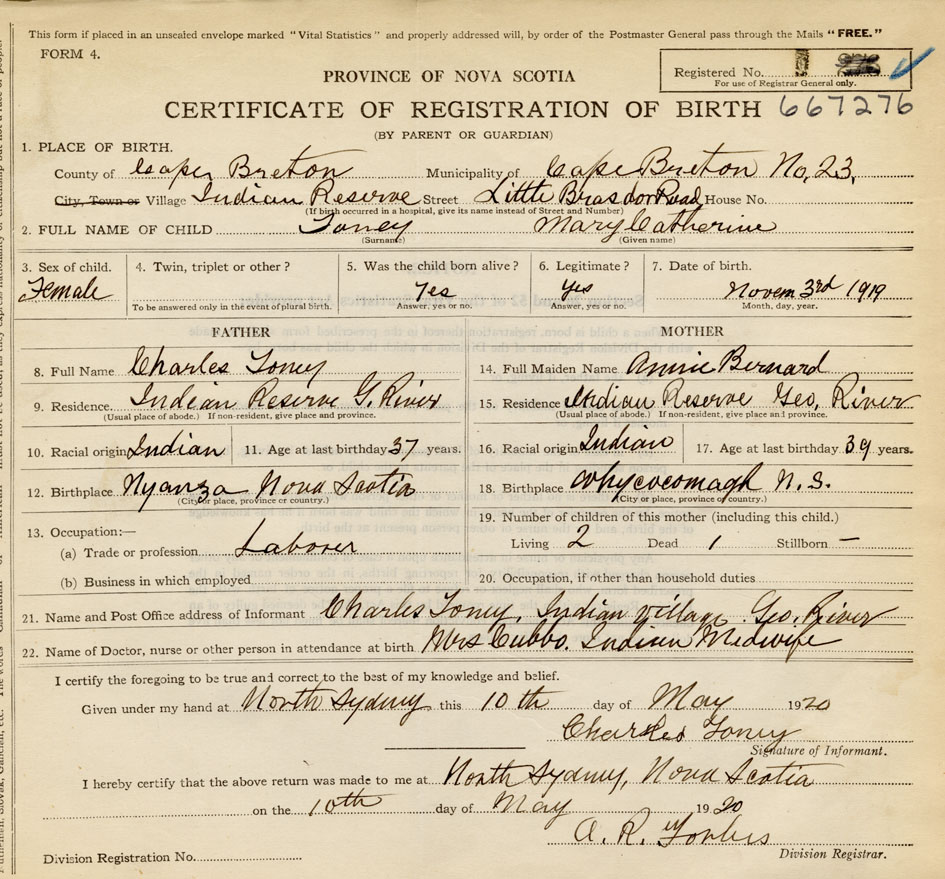 This form if placed in an unsealed envelope marked "Vital Statistics" and properly addressed will, by order of the Postmaster General pass through the Mails "FREE."
FORM 4.
Registered No.
For use of Registrar General only.
PROVINCE OF NOVA SCOTIA
CERTIFICATE OF REGISTRATION OF BIRTH 667276
(BY PARENT OR GUARDIAN)
1. PLACE OF BIRTH.
County of Cape Breton Municipality of Cape Breton No, 23,
City, Town or Village Indian Reserve Street Little Brasdor Road House No.
(If birth occurred in a hospital, give its name instead of Street and Number)
2. FULL NAME OF CHILD Toney Mary Catherine
(Surname) (Given name)
3. Sex of child. 4. Twin, triplet or other? 5. Was the child born alive? 6. Legitimate? 7. Date of birth.
Female Yes yes Novem 3rd 1919
To be answered only in the event of plural birth. Answer, yes or no. Answer, yes or no. Month, day, year.
FATHER MOTHER
8. Full Name Charles Toney 14. Full Maiden Name Annie Bernard
9. Residence. Indian Reserve G. River 15. Residence Indian Reserve Geo, River
(Usual place of abode.) If non-resident, give place and province. (Usual place of abode.) If non-resident, give place and province.
10. Racial origin Indian 11. Age at last birthday 37 years. 16. Racial origin Indian 17. Age at last birthday 39 years.
12. Birthplace Nyanza Nova Scotia 18. Birthplace Whycocomagh N.S.
(City or place, province or country.) (City or place, province or country.)
13. Occupation:— 19. Number of children of this mother (including this child.)
(a) Trade or profession Laborer Living 2 Dead 1 Stillborn —
(b) Business in which employed 20. Occupation, if other than household duties
21. Name and Post Office address of Informant Charles Toney, Indian village Geo, River
22. Name of Doctor, nurse or other person in attendance at birth Mrs Cubbo. Indian Midwife
I certify the foregoing to be true and correct to the best of my knowledge and belief.
Given under my hand at North Sydney this 10th day of May 1920
Charles Toney
Signature of Informant.
I hereby certify that the above return was made to me at North Sydney, Nova Scotia
on the 10th day of May 1920
A. R. Forbes
Division Registration No. Division Registrar.